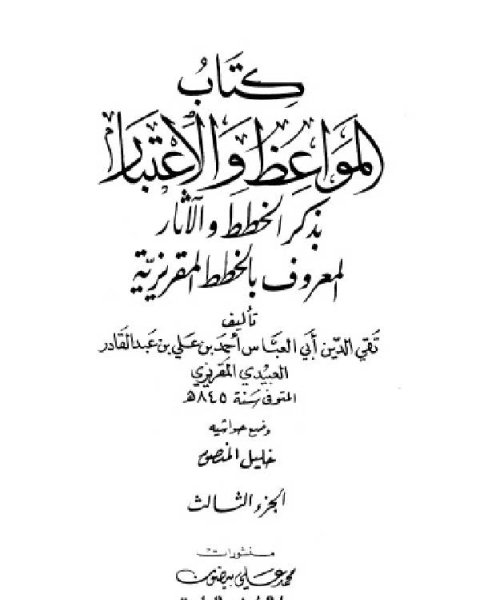 كِتَابُ
المَوَاعِظِ وَالاِعْتِبَارِ
بِذِكْرِ الخِطَطِ وَالآثَارِ
المعروف بالخطط المقريزيّة
تأليف
تَقيّ الدّين أَبي العبَّاس أحمد بن عَلي بن عَبد القَادر
العبيْدي المقريزي
المتوفى سَنة ٨٤٥هـ
وضع حواشيه
خليل المنصور
الجزء الثالث
منشورات
محمد علي بيضون